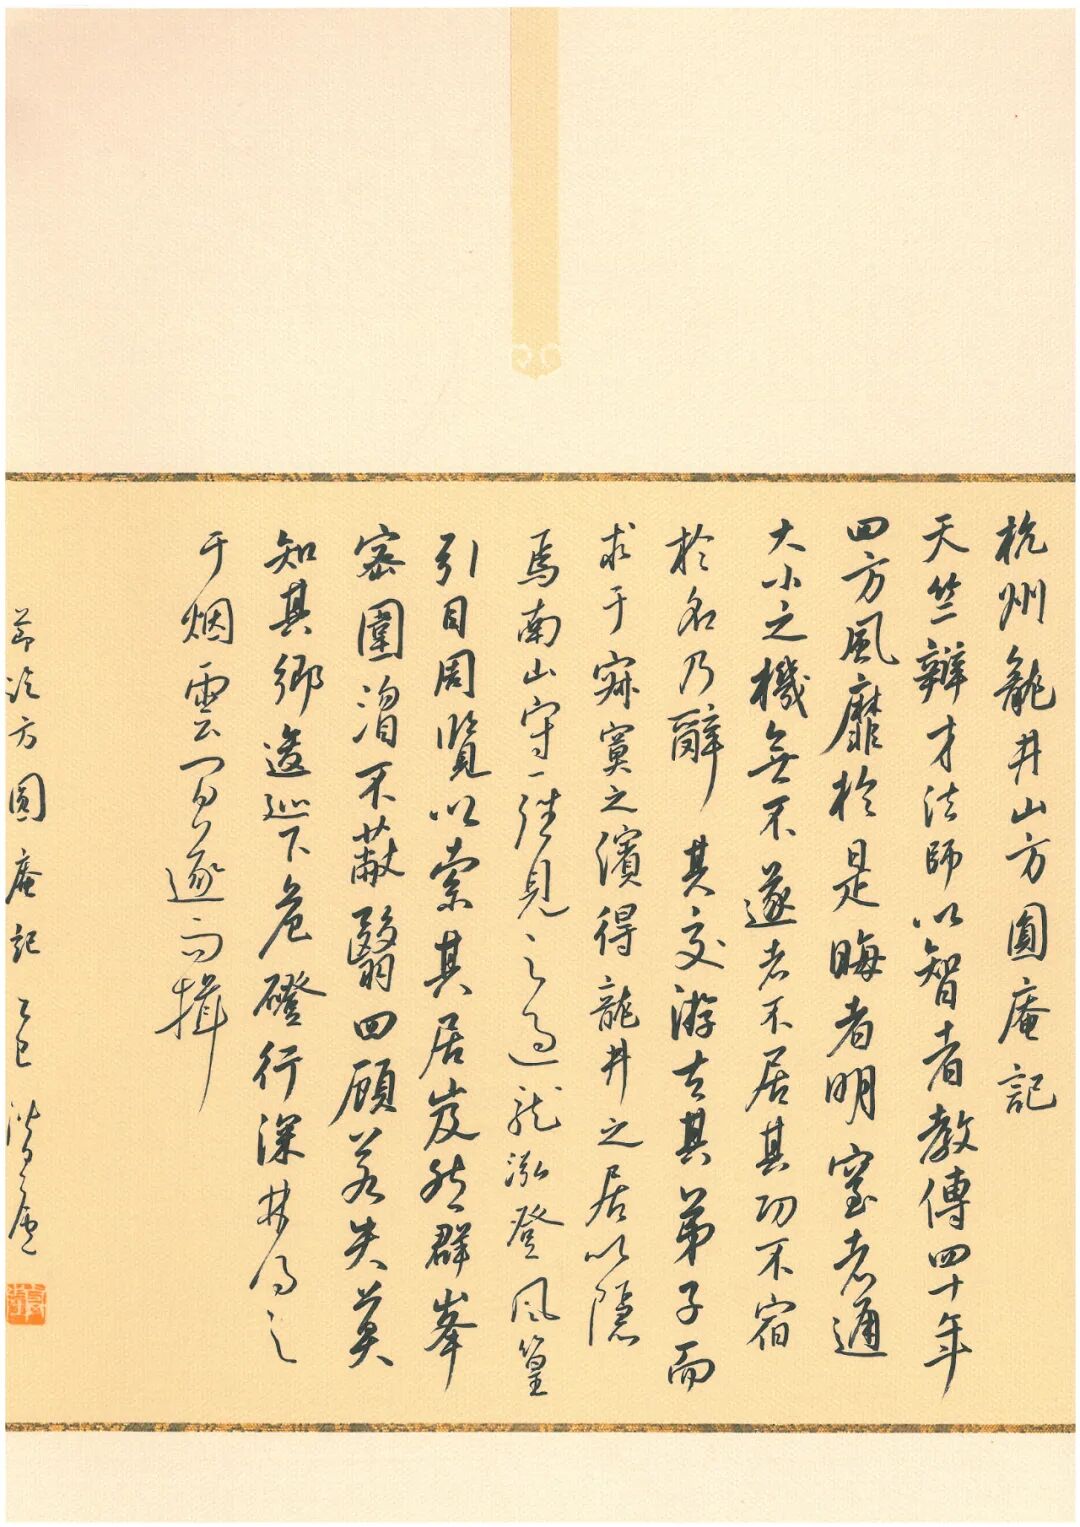 杭州龍井山方圓庵記
天竺辯才法師以智者教傳四十年
四方風靡於是晦者明窒者通
大小之機無不遂者不居其功不宿
於名乃辭其交游去其弟子而
求于寂寞之濱得龍井之居以隱
焉南山守一往見之過龍泓登風篁
引目周覽以索其居岌然群峯
密圍不蔽翳四顧若失莫
知其鄉逡巡下危磴行深林得之
于烟雲間遂而揖
節臨方圓庵記 乙巳